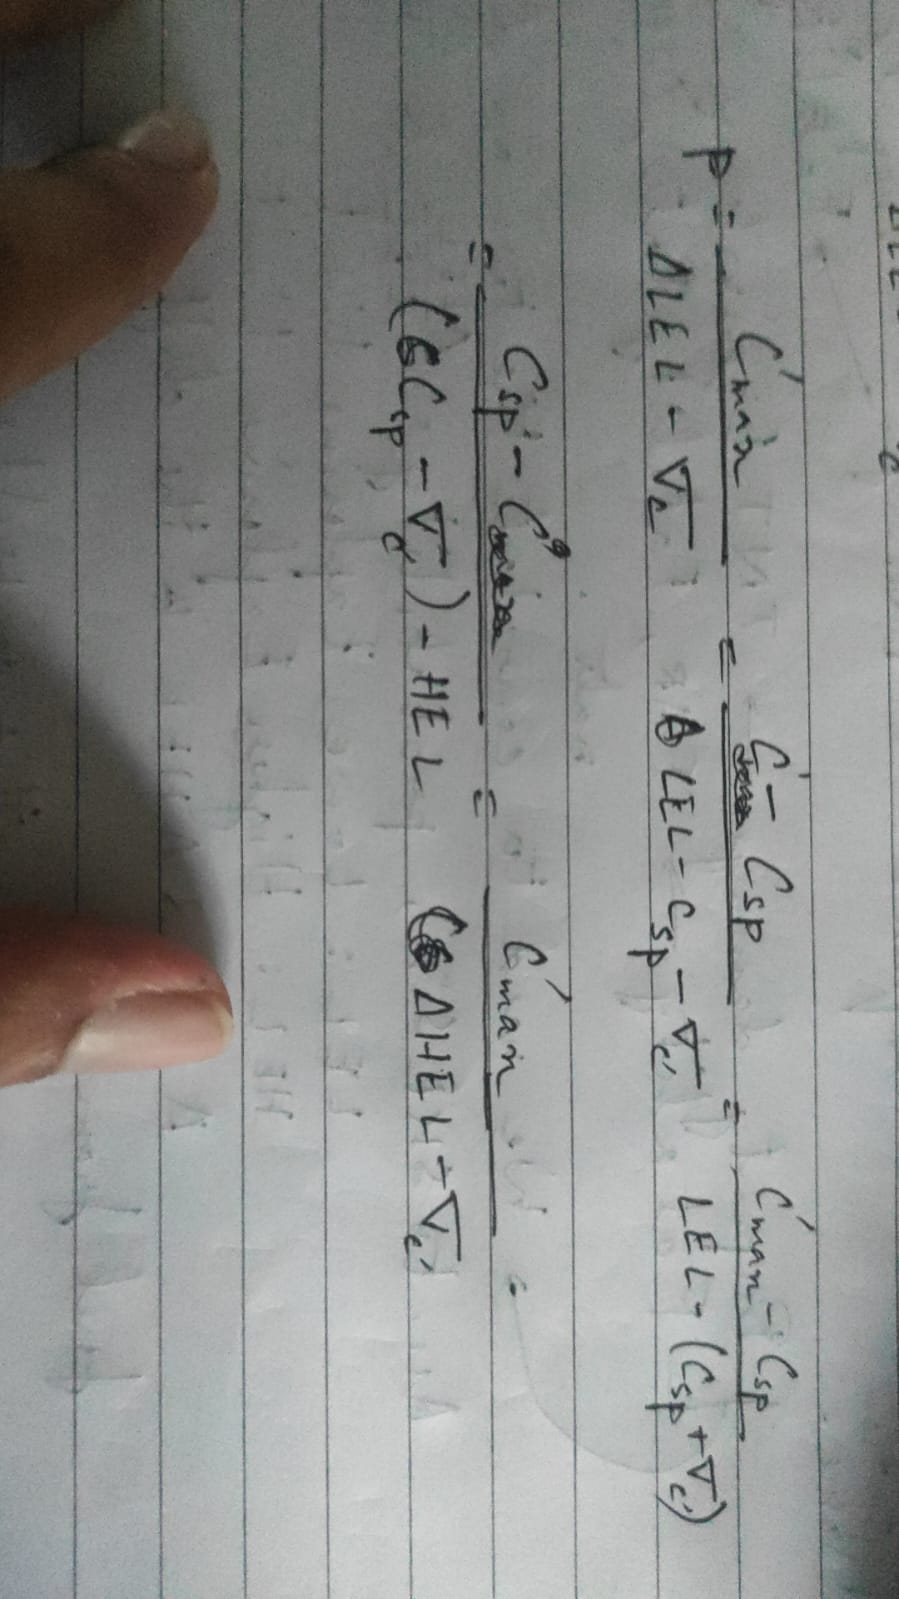 p = C'max / ΔLEL - ∇c = C' - Csp / LEL - Csp - ∇c' = C'max - Csp / LEL - (Csp + ∇c')
= Csp - C' / (Csp - ∇c') - HEL = C'max / (ΔHEL - ∇c' =